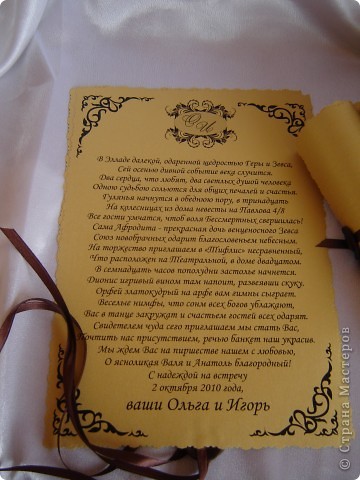 О И
В Элладе далекой, одаренной щедростью Геры и Зевса,
Сей осенью дивной событие века случится.
Два сердца, что любят, два светлых души человека
Одною судьбою сольются для общих печалей и счастья.
Гулянья начнутся в обеденную пору, в тринадцать
На колесницах из дома невесты на Павлова 4/8
Все гости умчатся, чтоб воля Бессмертных свершилась!
Сама Афродита - прекрасная дочь венценосного Зевса
Союз новобрачных одарит благословеньем небесным.
На торжество приглашаем в «Тифлис» несравненный,
Что расположен на Театральной, в доме двадцатом.
В семнадцать часов пополудни застолье начнется.
Дионис игривый вином там напоит, развеявши скуку.
Орфей златокудрый на арфе вам гимны сыграет.
Веселые нимфы, что сонм всех богов ублажают,
Вас в танце закружат и счастьем гостей всех одарят.
Свидетелем чуда сего приглашаем мы стать Вас,
Почтить нас присутствием, речью банкет наш украсив.
Мы ждем Вас на пиршестве нашем с любовью,
О ясноликая Валя и Анатоль благородный!
С надеждой на встречу
2 октября 2010 года,
ваши Ольга и Игорь
© Страна Мастеров